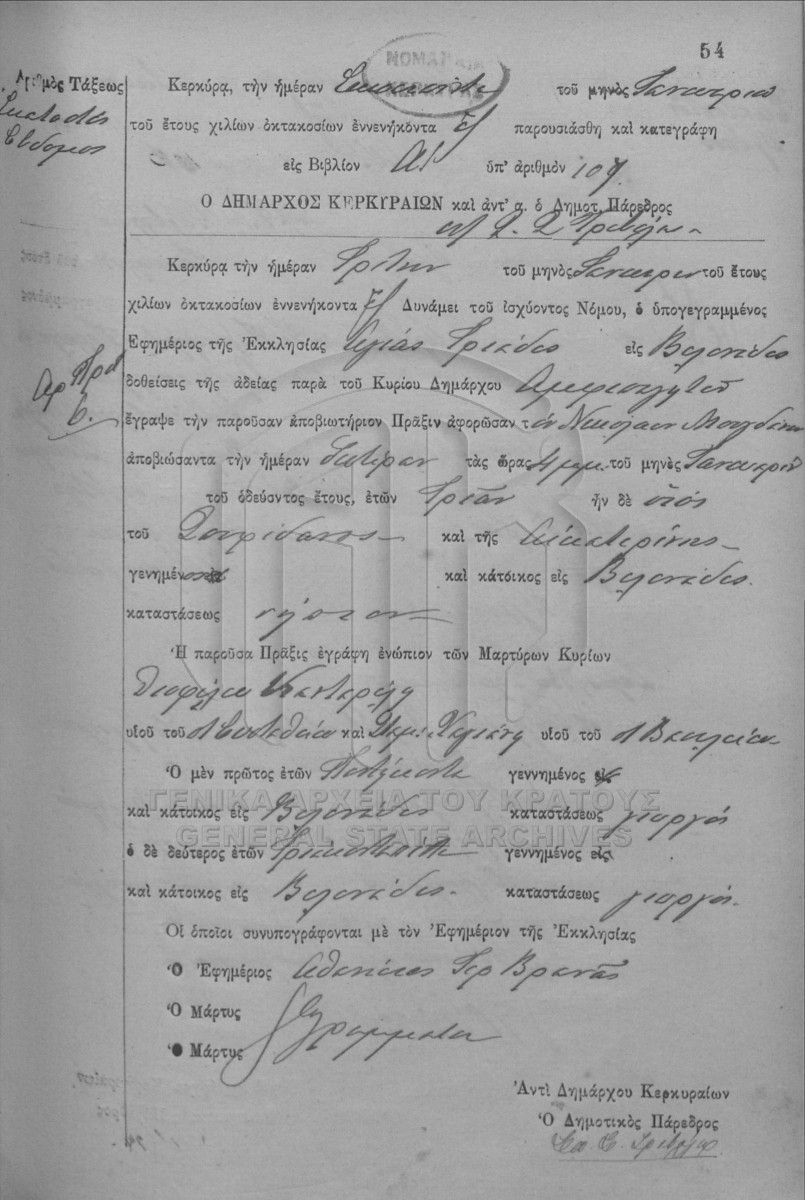 54
ΝΟΜΑΡΧΙΑ
ΚΕΡΚΥΡΑΣ
Ἀριθμὸς Τάξεως
Ἑκατοστὸς
Ἕβδομος
Κερκύρᾳ, τὴν ἡμέραν τοῦ μηνὸς Ἰανουαρίου
τοῦ ἔτους χιλίων ὀκτακοσίων ἐννενήκοντα ἓξ παρουσιάσθη καὶ κατεγράφη
εἰς Βιβλίον Αον ὑπ' ἀριθμὸν 107
Ο ΔΗΜΑΡΧΟΣ ΚΕΡΚΥΡΑΙΩΝ καὶ ἀντ' α. ὁ Δημοτ. Πάρεδρος
Κερκύρᾳ τὴν ἡμέραν Τρίτην τοῦ μηνὸς Ἰανουαρίου τοῦ ἔτους
χιλίων ὀκτακοσίων ἐννενήκοντα ἓξ Δυνάμει τοῦ ἰσχύοντος Νόμου, ὁ ὑπογεγραμμένος
Ἐφημέριος τῆς Ἐκκλησίας Ἁγίας Τριάδος εἰς Βελονάδες
Αρ Πρω
6.
δοθείσεις τῆς ἀδείας παρὰ τοῦ Κυρίου Δημάρχου
ἔγραψε τὴν παροῦσαν ἀποβιωτήριον Πρᾶξιν ἀφορῶσαν τὸν Νικόλαον
ἀποβιώσαντα τὴν ἡμέραν Δευτέραν τὰς ὥρας 4 μμ. τοῦ μηνὸς Ἰανουαρίου
τοῦ ὁδεύσντος ἔτους, ἐτῶν Τριῶν ἦν δὲ υἱὸς
τοῦ Σπυρίδωνος καὶ τῆς Αἰκατερίνης
γενημέν καὶ κάτοικος εἰς Βελονάδες.
καταστάσεως νήπιον
Ἡ παροῦσα Πρᾶξις ἐγράφη ἐνώπιον τῶν Μαρτύρων Κυρίων
Θεοφίλου
υἱοῦ τοῦ Εὐσταθίου καὶ υἱοῦ τοῦ Βασιλείου
Ὁ μὲν πρῶτος ἐτῶν Πενῆντα γεννημένος εἰς
καὶ κάτοικος εἰς Βελονάδες καταστάσεως γεωργός
ὁ δὲ δεύτερος ἐτῶν Τριανταπέντε γεννημένος εἰς
καὶ κάτοικος εἰς Βελονάδες καταστάσεως γεωργός.
Οἱ ὁποῖοι συνυπογράφονται μὲ τὸν Ἐφημέριον τῆς Ἐκκλησίας
Ὁ Ἐφημέριος Αθανάσιος Ιερ Βρανᾶς
Ὁ Μάρτυς
Ὁ Μάρτυς αγράμματοι
Ἀντὶ Δημάρχου Κερκυραίων
Ὁ Δημοτικὸς Πάρεδρος
ΓΕΝΙΚΑ ΑΡΧΕΙΑ ΤΟΥ ΚΡΑΤΟΥΣ
GENERAL STATE ARCHIVES